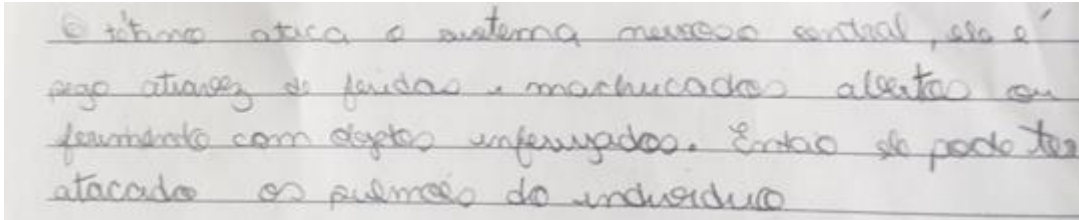 O tétano ataca o sistema nervoso central, ele é
pego atravez de feridas e machucados abertos ou
ferimento com objetos enferrujados. Então ele pode ter
atacado os pulmões do individuo